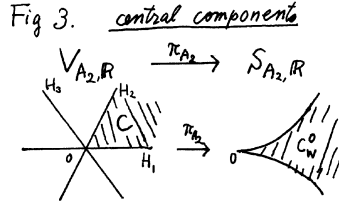 Fig 3. central components
V_{A_2,ℝ} π_{A_2} S_{A_2,ℝ}
H_3 H_2
C π_{A_2} C_W^0
0 H_1 0